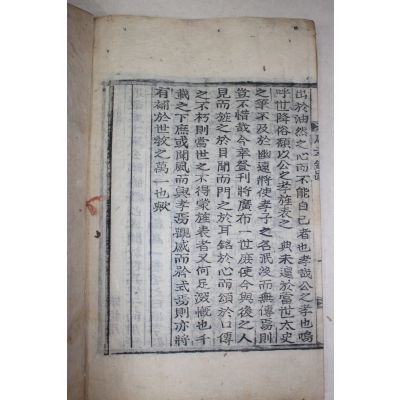 出於油然之心而不能自已者也孝哉公之孝也嗚
呼世降俗頹以公之孝旌表之典未還於當世太史
之筆不及於幽遠將使孝子之名泯沒而無傳焉則
豈不惜哉今幸登刊將廣布一世庶使今與後之人
見而旌之於目聞而門之於耳銘於心而頌於口傳
之不朽則當世之不得蒙旌表者又何足溉慨也千
載之下庶或聞風而興孝焉觀感而矜式焉則亦將
有補於世教之萬一也歟